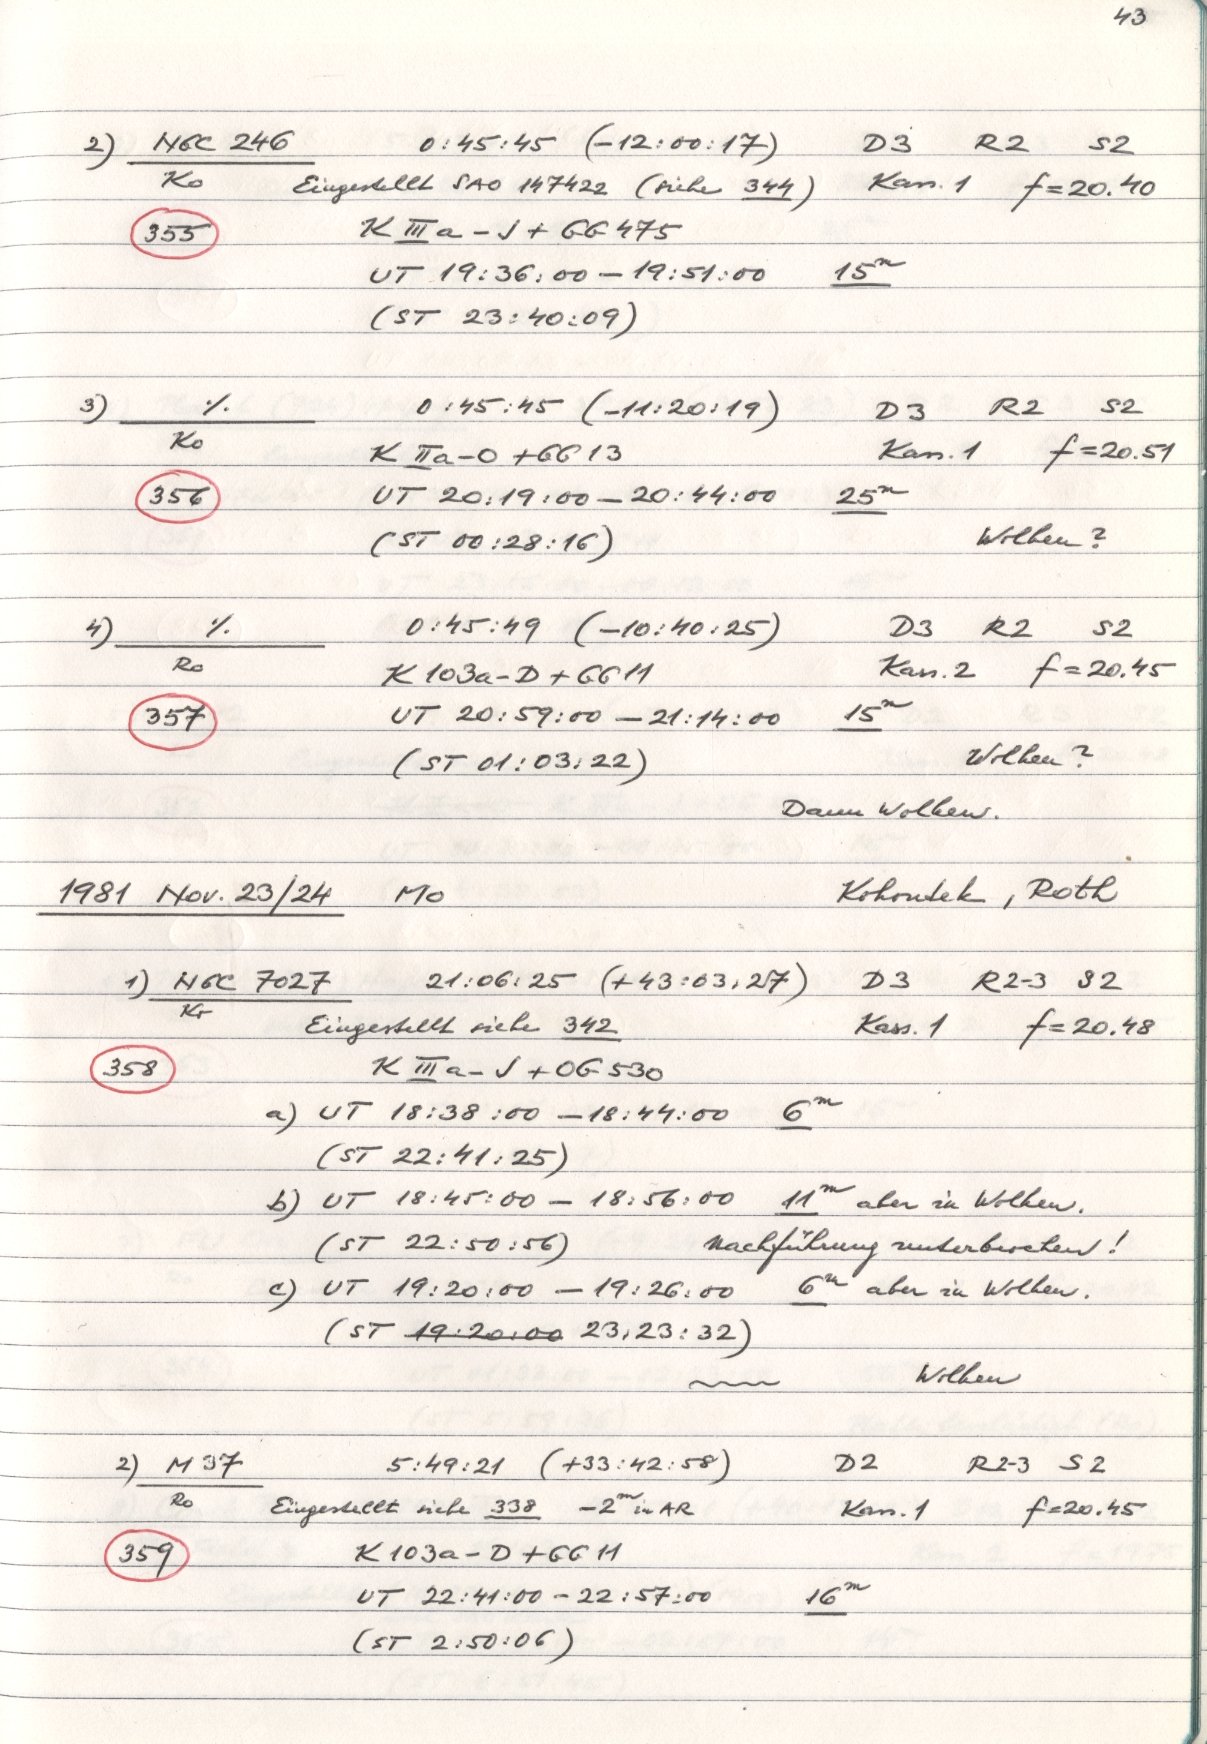 43
2) NGC 246 0:45:45 (-12:00:17) D3 R2 S2
Ko Eingestellt SAO 147422 (siehe 344) Kass. 1 f=20.40
355 K IIIa-J+GG475
UT 19:36:00 - 19:51:00 15m
(ST 23:40:09)
3) ./. 0:45:45 (-11:20:19) D3 R2 S2
Ko K IIa-O+GG13 Kass. 1 f=20.51
356 UT 20:19:00 - 20:44:00 25m
(ST 00:28:16) Wolken?
4) ./. 0:45:49 (-10:40:25) D3 R2 S2
Ro K 103a-D+GG11 Kass. 2 f=20.45
357 UT 20:59:00 - 21:14:00 15m
(ST 01:03:22) Wolken?
Dann Wolken.
1981 Nov. 23/24 Mo Kohoutek, Roth
1) NGC 7027 21:06:25 (+43:03:27) D3 R2-3 S2
Kr Eingestellt siehe 342 Kass. 1 f=20.48
358 K IIIa-J+OG530
a) UT 18:38:00 - 18:44:00 6m
(ST 22:41:25)
b) UT 18:45:00 - 18:56:00 11m aber in Wolken.
(ST 22:50:56) Nachführung unterbrochen!
c) UT 19:20:00 - 19:26:00 6m aber in Wolken.
(ST 19:20:00 23:23:32)
Wolken
2) M 37 5:49:21 (+33:42:58) D2 R2-3 S2
Ro Eingestellt siehe 338 -2m in AR Kass. 1 f=20.45
359 K 103a-D+GG11
UT 22:41:00 - 22:57:00 16m
(ST 2:50:06)